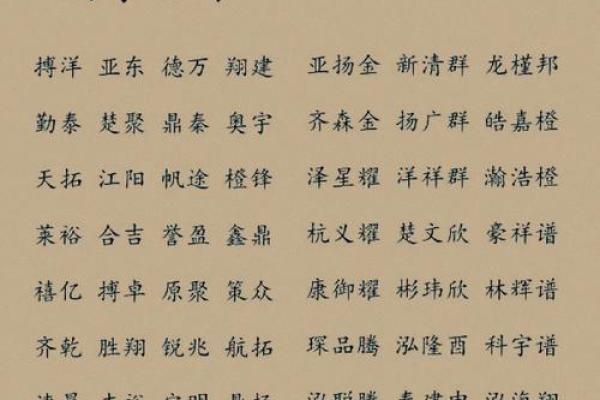 搏洋 亚东 德万 翔建 亚扬金 新清群 龙槿邦
勤泰 楚聚 鼎秦 奥宇 齐森金 扬广群 皓嘉橙
天拓 江阳 帆途 橙锋 泽星耀 洋祥群 瀚浩橙
莱裕 合吉 誉盈 鑫鼎 杭义耀 楚文欣 豪祥谱
禧亿 搏卓 原聚 策众 康御耀 彬玮欣 林辉谱
齐乾 胜翔 锐兆 航拓 琛品腾 泓隆酉 科宇谱